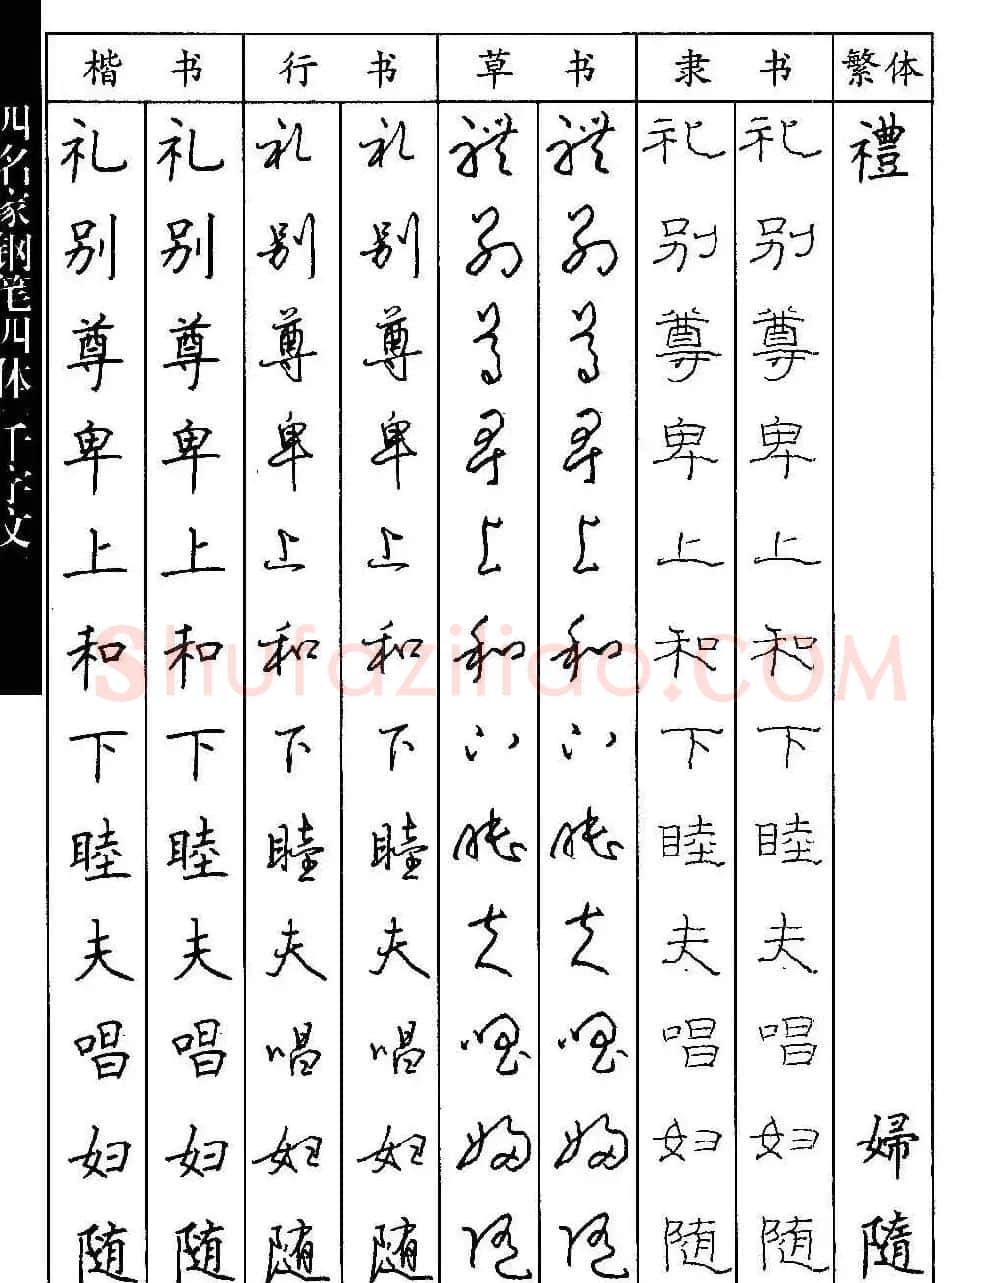 四名家钢笔四体 千字文
楷书 行书 草书 隶书 繁体
礼 礼 礼 礼 禮 禮 礼 礼 禮
别 别 别 别 别 别 别 别
尊 尊 尊 尊 尊 尊 尊 尊
卑 卑 卑 卑 卑 卑 卑 卑
上 上 上 上 上 上 上 上
和 和 和 和 和 和 和 和
下 下 下 下 下 下 下 下
睦 睦 睦 睦 睦 睦 睦 睦
夫 夫 夫 夫 夫 夫 夫 夫
唱 唱 唱 唱 唱 唱 唱 唱
妇 妇 妇 妇 婦 婦 妇 妇 婦
随 随 随 随 随 随 随 随 隨
shufaziliao.COM